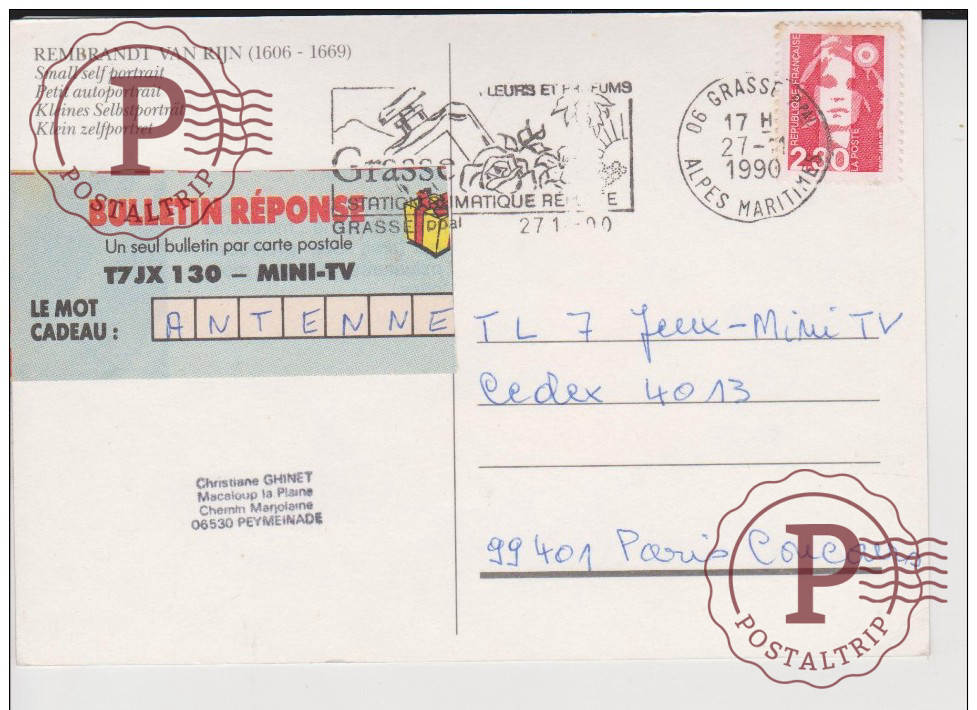 REMBRANDT VAN RIJN (1606 - 1669)
Small self portrait
Petit autoportrait
Kleines Selbstporträt
Klein zelfportret
P
POSTALTRIP
LEURS ET PARFUMS
Grasse
STATION CLIMATIQUE RÉPUTÉE
GRASSE ppal
06 GRASSE PPAL
17 H
27-
1990
ALPES MARITIMES
REPUBLIQUE FRANÇAISE
2.30
LA POSTE
BULLETIN RÉPONSE
Un seul bulletin par carte postale
T7JX 130 – MINI-TV
LE MOT
CADEAU : ANTENNE
TL 7 Jeux-Mini TV
Cedex 4013
99401 Paris Concours
Christiane GHINET
Macaloup la Plaine
Chemin Marjolaine
06530 PEYMEINADE
P
POSTALTRIP